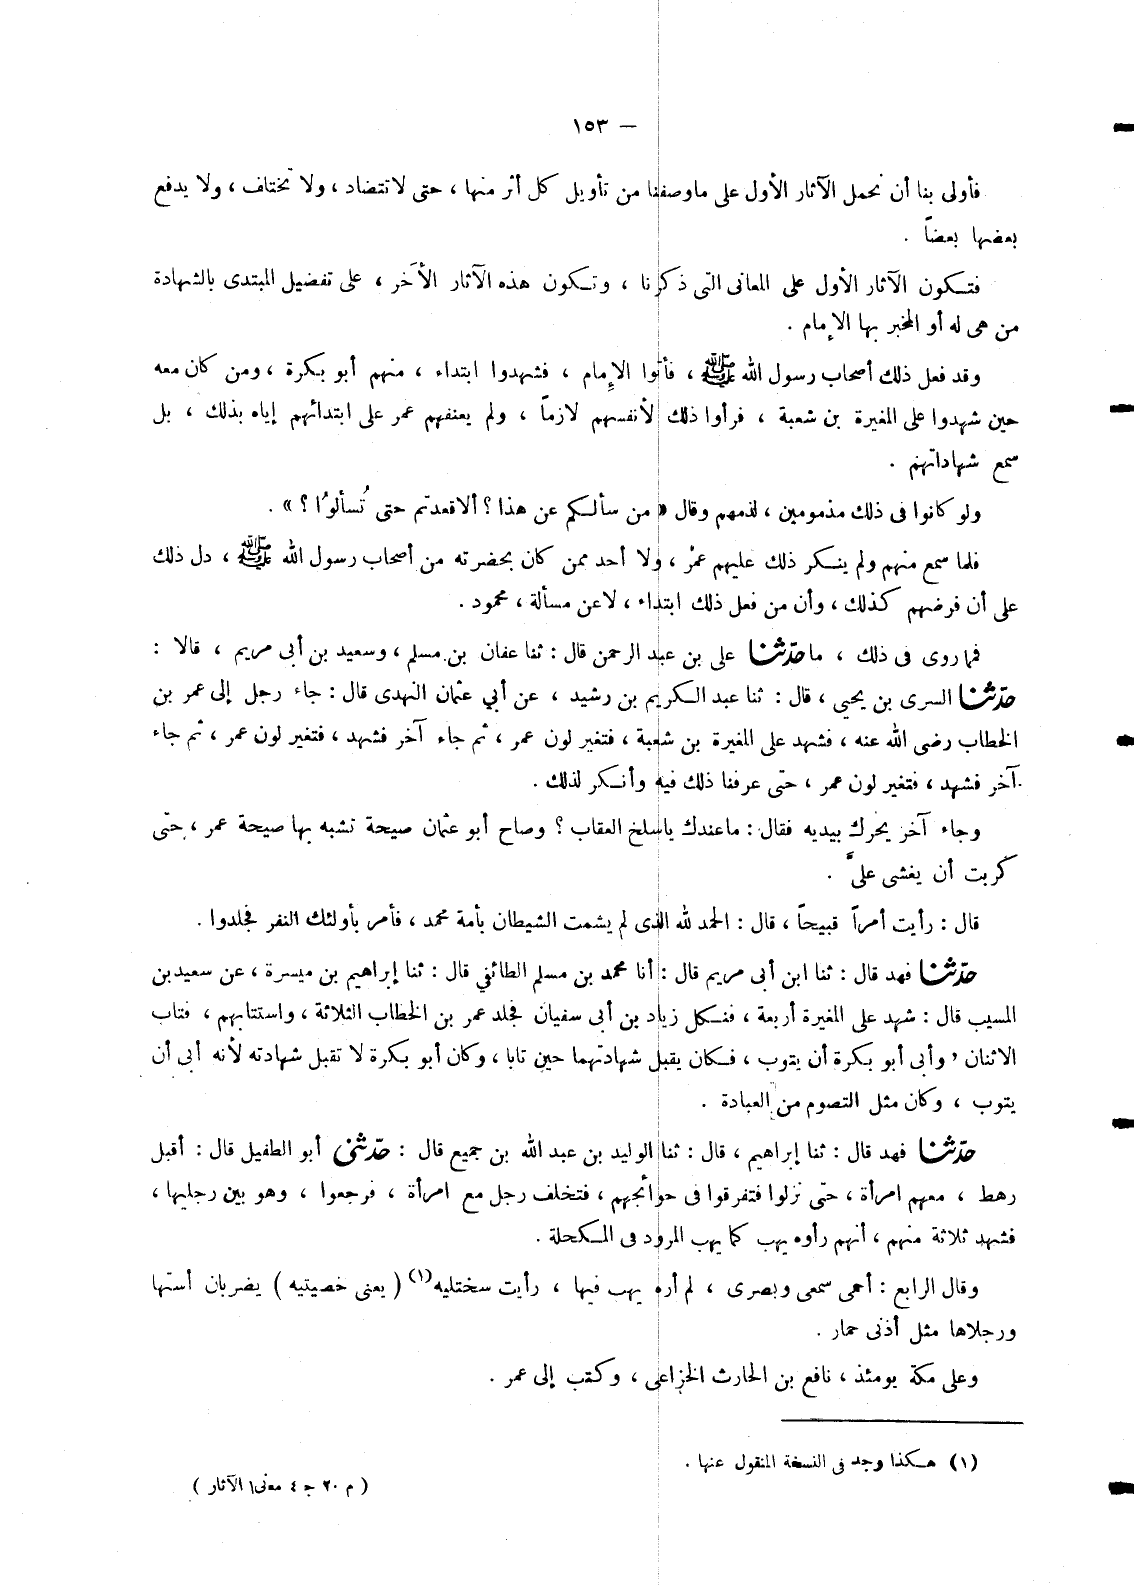 — ١٥٣
فأولى بنا أن نحمل الآثار الأول على ماوصفنا من تأويل كل أثر منها ، حتى لاتتضاد ، ولا تختاف ، ولا يدفع
بعضها بعضاً .
فتكون الآثار الأول على المعانى التى ذكرنا ، وتكون هذه الآثار الأخَر ، على تفضيل المبتدى بالشهادة
من هى له أو المخبر بها الإمام .
وقد فعل ذلك أصحاب رسول الله ﷺ ، فأتوا الإمام ، فشهدوا ابتداء ، منهم أبو بكرة ، ومن كان معه
حين شهدوا على المغيرة بن شعبة ، فرأوا ذلك لأنفسهم لازماً ، ولم يعنفهم عمر على ابتدائهم إياه بذلك ، بل
سمع شهاداتهم .
ولو كانوا فى ذلك مذمومين ، لذمهم وقال « من سألكم عن هذا ؟ ألاقعدتم حتى تُسألوُا ؟ » .
فلما سمع منهم ولم ينكر ذلك عليهم عمر ، ولا أحد ممن كان بحضرته من أصحاب رسول الله ﷺ ، دل ذلك
على أن فرضهم كذلك ، وأن من فعل ذلك ابتداء ، لاعن مسألة ، محمود .
فما روى فى ذلك ، ما حدّثنا على بن عبد الرحمن قال : ثنا عفان بن مسلم ، وسعيد بن أبى مريم ، قالا :
حدّثنا السرى بن يحيي ، قال : ثنا عبد الكريم بن رشيد ، عن أبي عثمان النهدى قال : جاء رجل إلى عمر بن
الخطاب رضى الله عنه ، فشهد على المغيرة بن شعبة ، فتغير لون عمر ، ثم جاء آخر فشهد ، فتغير لون عمر ، ثم جاء
آخر فشهد ، فتغير لون عمر ، حتّى عرفنا ذلك فيه وأنكر لذلك .
وجاء آخر يحرك بيديه فقال : ماعندك ياسلخ العقاب ؟ وصاح أبو عثمان صيحة تشبه بها صيحة عمر ، حتّى
كربت أن يغشى علىَّ .
قال : رأيت أمراً قبيحاً ، قال : الحمد لله الذى لم يشمت الشيطان بأمة محمد ، فأمر بأولئك النفر فجلدوا .
حدّثنا فهد قال : ثنا ابن أبى مريم قال : أنا محمد بن مسلم الطائفي قال : ثنا إبراهيم بن ميسرة ، عن سعيدبن
المسيب قال : شهد على المغيرة أربعة ، فنكل زياد بن أبى سفيان فجلد عمر بن الخطاب الثلاثة ، واستتابهم ، فتاب
الاثنان ، وأبى أبو بكرة أن يتوب ، فكان يقبل شهادتهما حين تابا ، وكان أبو بكرة لا تقبل شهادته لأنه أبى أن
يتوب ، وكان مثل التصوم من العبادة .
حدّثنا فهد قال : ثنا إبراهيم ، قال : ثنا الوليد بن عبد الله بن جميع قال : حدّثنى أبو الطفيل قال : أقبل
رهط ، معهم امرأة ، حتّى نزلوا فتفرقوا فى حوائجهم ، فتخلف رجل مع امرأة ، فرجعوا ، وهو بين رجليها ،
فشهد ثلاثة منهم ، أنهم رأوه يهب كما يهب المرود فى المكحلة .
وقال الرابع : أحمى سمعى وبصرى ، لم أره يهب فيها ، رأيت سختليه (١) ( يعنى خصيتيه ) يضربان أستها
ورجلاها مثل أذنى حمار .
وعلى مكة يومئذ ، نافع بن الحارث الخزاعى ، وكتب إلى عمر .
(١) هكذا وجد فى النسخة المنقول عنها .
( م ٢٠ جـ ٤ معنى الآثار )